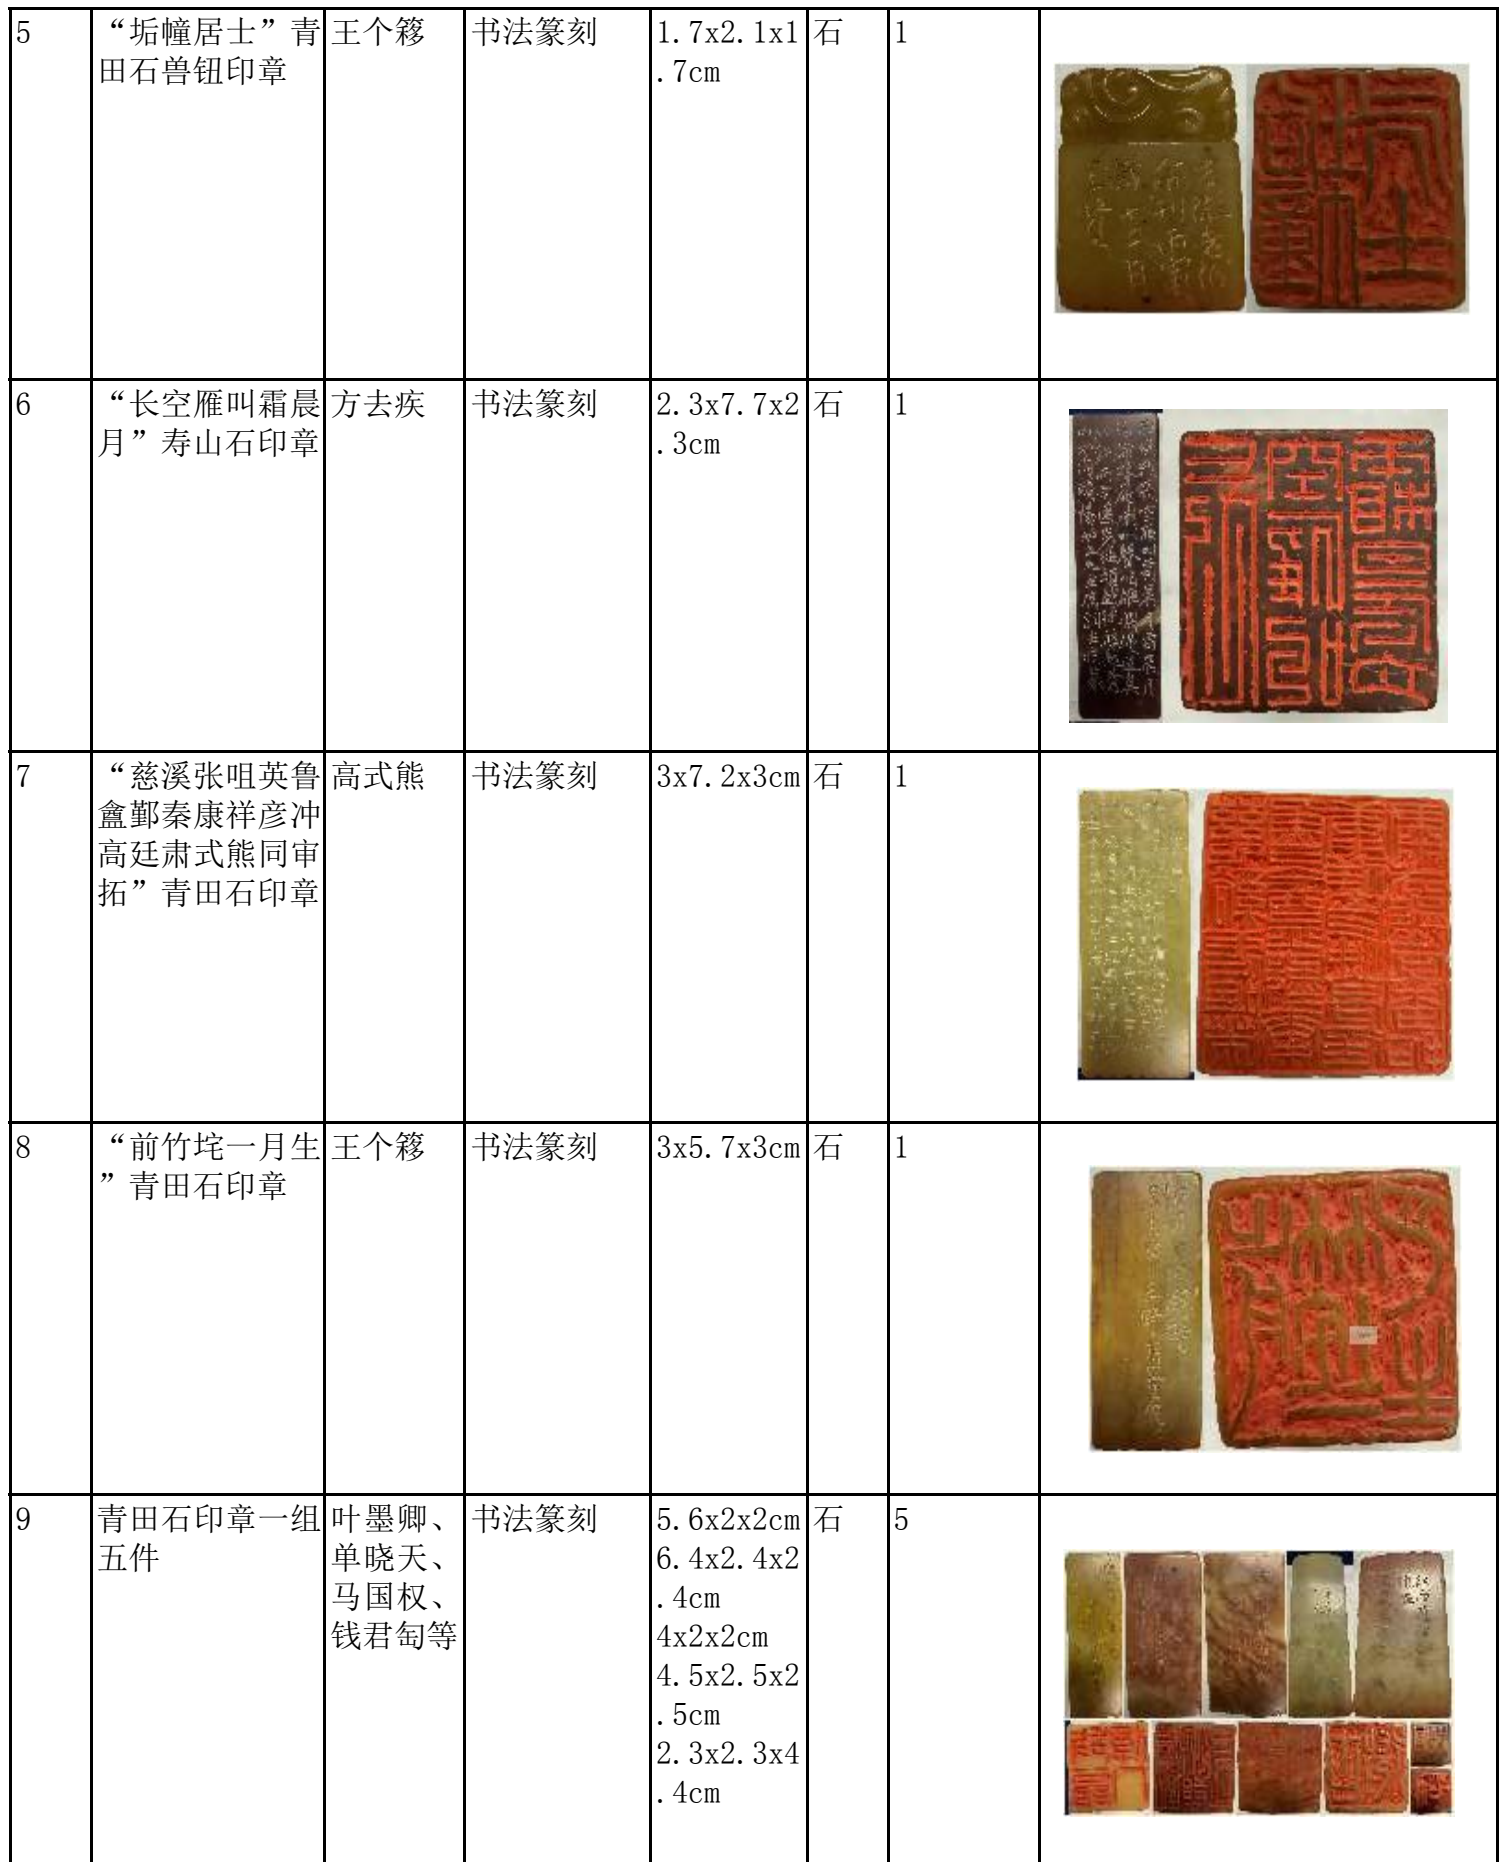 5
“垢幢居士”青
田石兽钮印章
王个簃
书法篆刻
1.7x2.1x1
.7cm
石
1
6
“长空雁叫霜晨
月”寿山石印章
方去疾
书法篆刻
2.3x7.7x2
.3cm
石
1
7
“慈溪张咀英鲁
盦鄞秦康祥彦冲
高廷肃式熊同审
拓”青田石印章
高式熊
书法篆刻
3x7.2x3cm
石
1
8
“前竹垞一月生
”青田石印章
王个簃
书法篆刻
3x5.7x3cm
石
1
9
青田石印章一组
五件
叶墨卿、
单晓天、
马国权、
钱君匋等
书法篆刻
5.6x2x2cm
6.4x2.4x2
.4cm
4x2x2cm
4.5x2.5x2
.5cm
2.3x2.3x4
.4cm
石
5